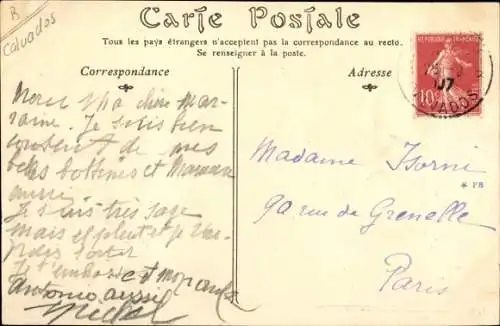 B
Calvados
Carte Postale
Tous les pays étrangers n'acceptent pas la correspondance au recto.
Se renseigner à la poste.
Correspondance
Adresse
REPUBLIQUE FRANÇAISE
10c
07
CALVADOS
Merci ma chère Mar-
raine. Je suis bien
contente de mes
belles bottines et Maman
aussi
Je suis très sage
mais il pleut et je
pas sortir
Je t'embrasse et mon
Antonio aussi
Madame Isorni
90 rue de Grenelle
* FB
Paris